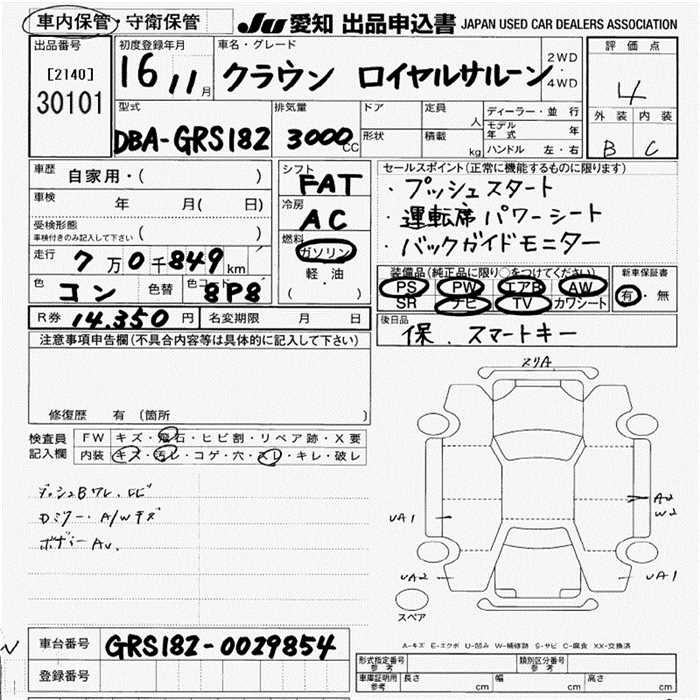 車内保管・守衛保管 JU 愛知 出品申込書 JAPAN USED CAR DEALERS ASSOCIATION
出品番号 初度登録年月 車名・グレード 評価点
[2140] 16 11月 クラウン ロイヤルサルーン 2WD・4WD 4
30101
型式 排気量 ドア 定員 人 ディーラー・並行 外装 内装
DBA-GRS182 3000CC 形状 積載 kg モデル年式 年 B C
ハンドル 左・右
車歴 自家用・( ) シフト FAT セールスポイント(正常に機能するものに限ります)
車検 年 月( 日) 冷房 AC ・プッシュスタート
受検形態 車検付きのみ記入して下さい ( ) 燃料 ガソリン ・運転席パワーシート
走行 7万0千849km 軽・油 ・バックガイドモニター
( ・ )
色 コン 色替 色コード 8P8 装備品(純正品に限り○をつけてください) 新車保証書
PS PW エアB AW 有・無
SR ナビ TV カワシート
R券 14,350円 名変期限 月 日 後日品
保.スマートキー
注意事項申告欄(不具合内容等は具体的に記入して下さい)
ヌリA
修復歴 有(箇所 )
検査員記入欄 FW キズ・飛石・ヒビ割・リペア跡・X要
内装 キズ・汚レ・コゲ・穴・スレ・キレ・破レ
ダッシュBワレ.
Dミラー・A/Wキズ
ボデーAU.
UA1 A2 W2
UA2 UA1
スペア
車台番号 GRS182-0029854
A-キズ E-エクボ U-凹み W-補修跡 S-サビ C-腐食 XX-交換済
登録番号 形式指定番号 参考 類別区分番号 参考
車庫証明用参考 長さ cm 幅 cm 高さ cm